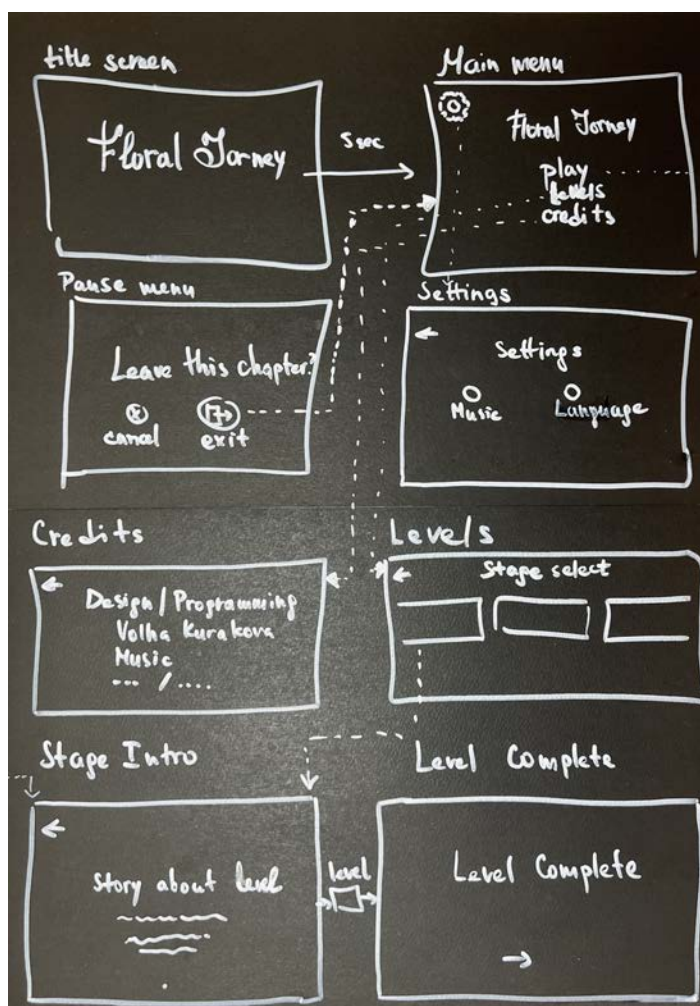 title screen
Floral Jorney
5 sec
Main menu
Floral Jorney
play
levels
credits
Pause menu
Leave this chapter?
cancel
exit
Settings
Settings
Music
Language
Credits
Design/Programming
Volha Kurakova
Music
--- / ....
Levels
Stage select
Stage Intro
Story about level
level
Level Complete
Level Complete